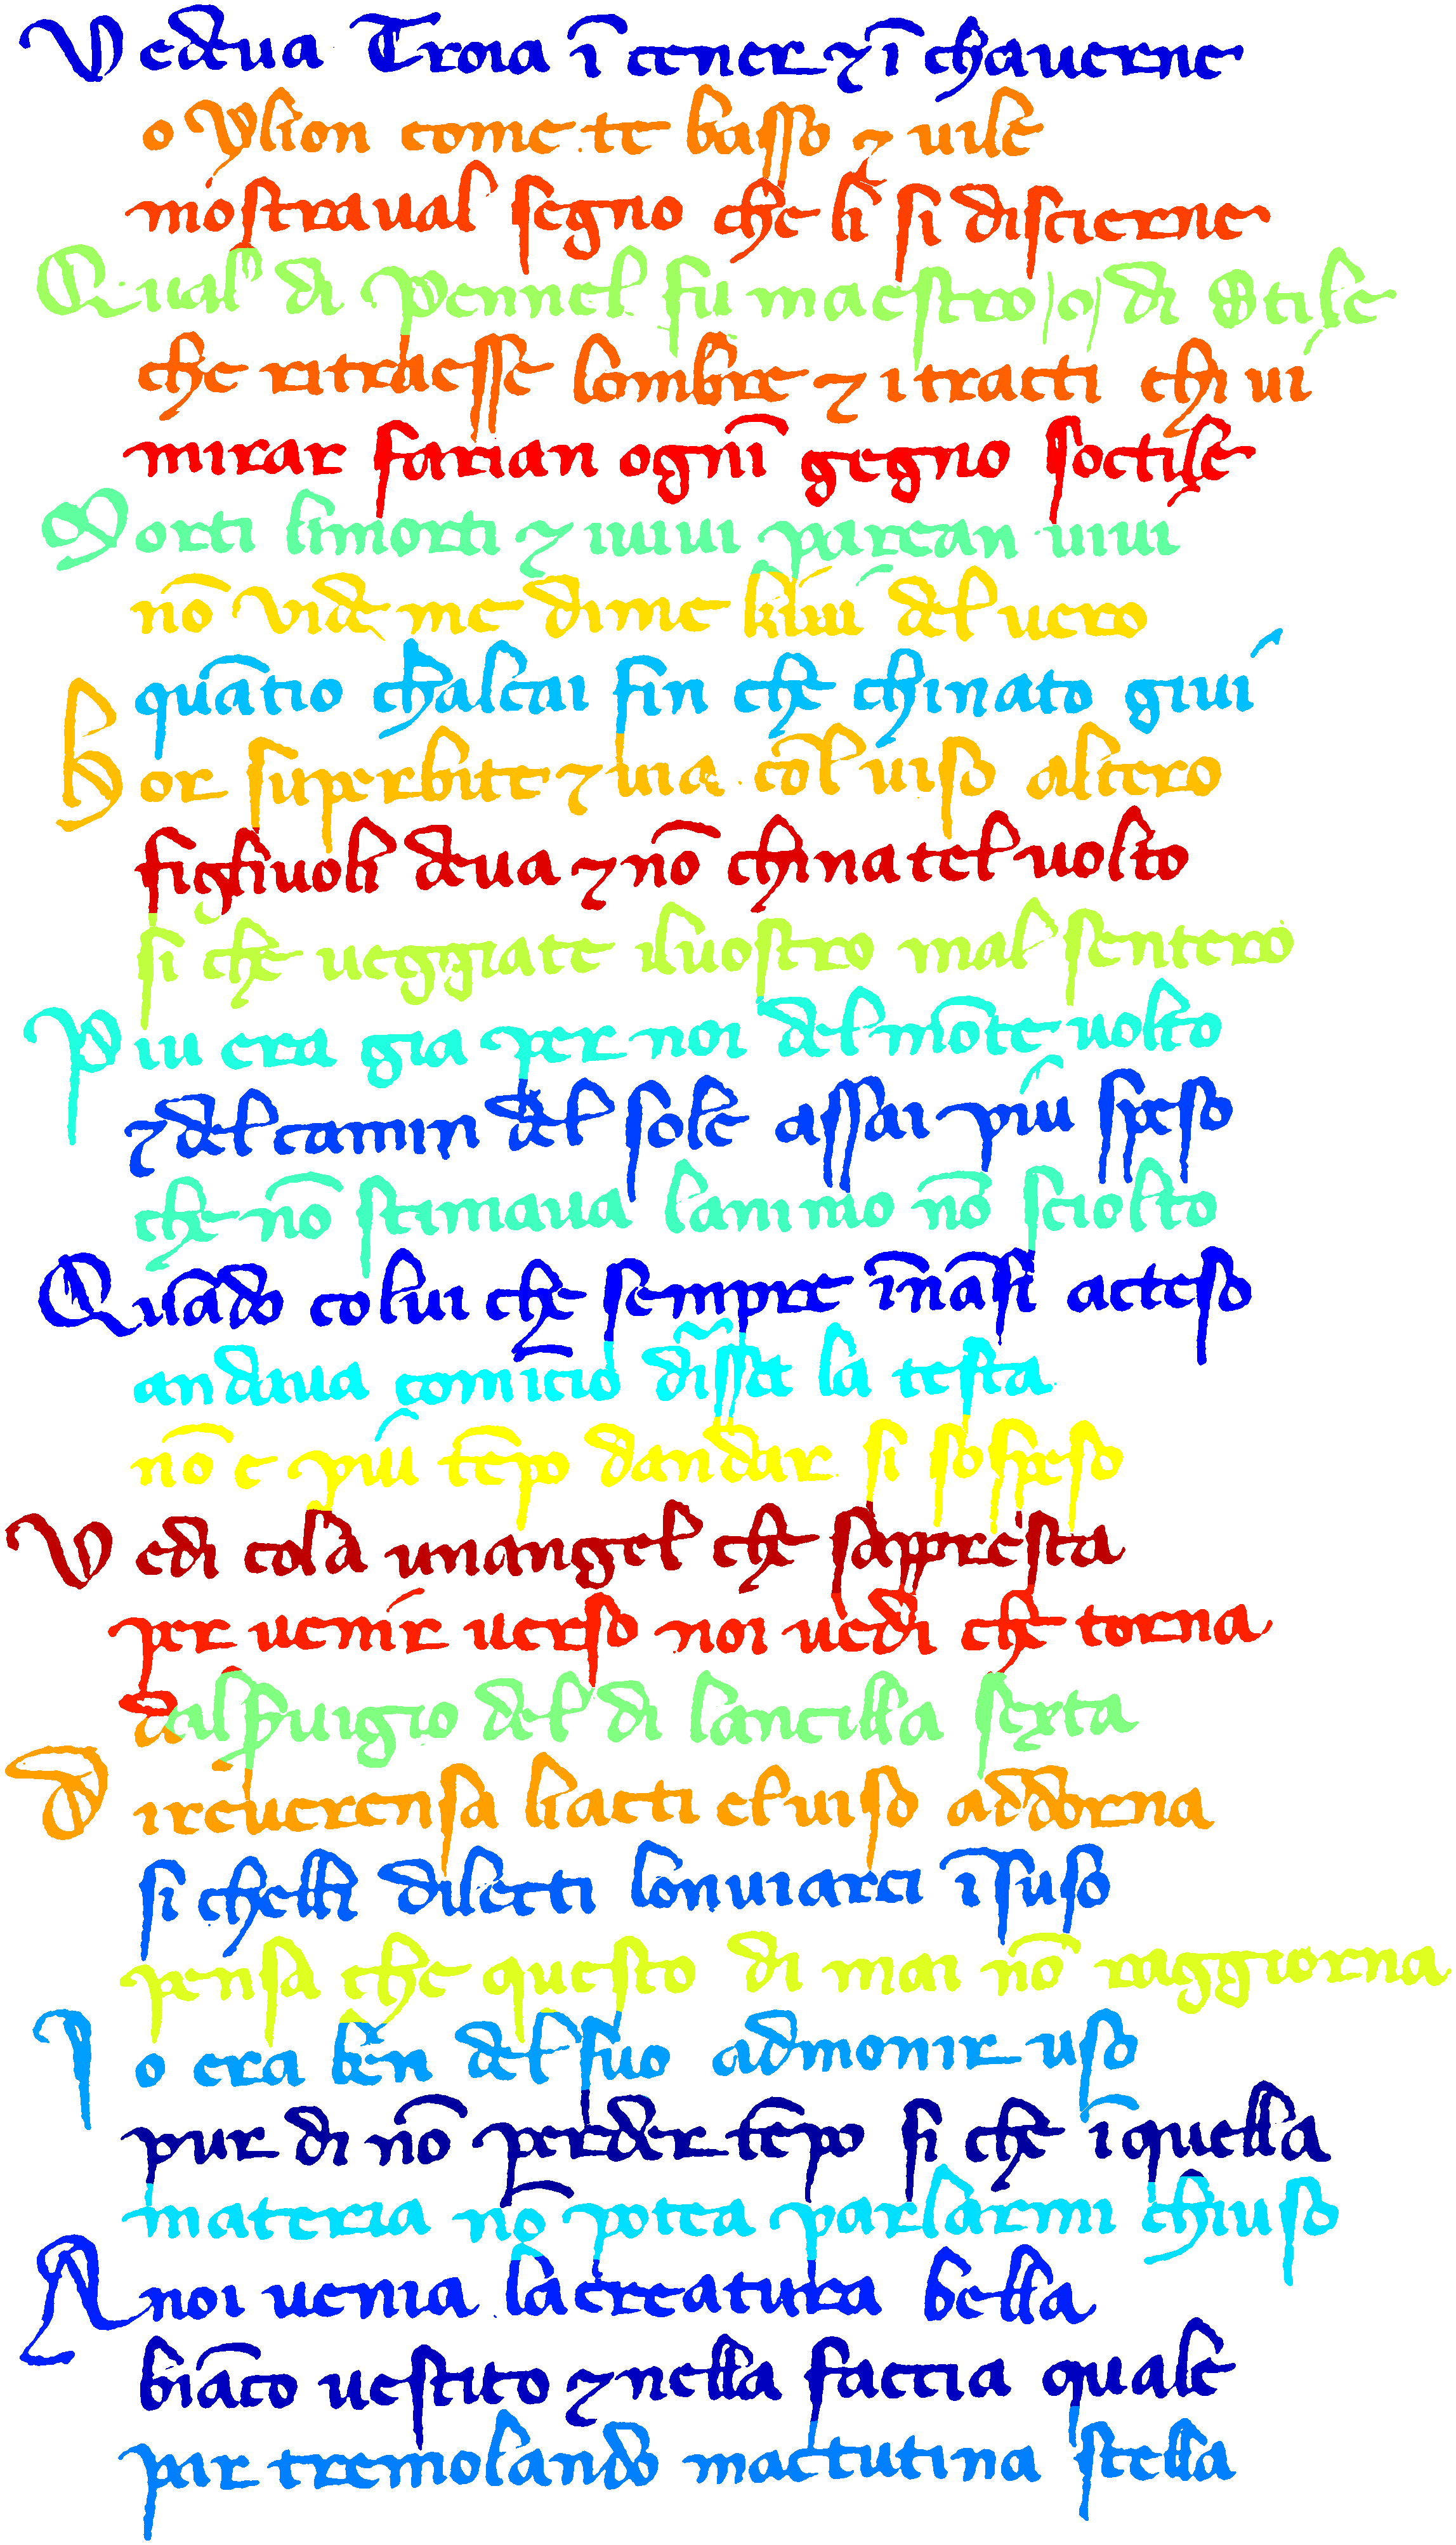 Vedeua Troia ī cener ⁊ ī chauerne
o ylion come te basso ⁊ uile
mostraual segno che li si discierne
Qual di pennel fu maestro /o/ di stile
che ritraesse lombre ⁊ i tracti chi ui
mirar farian ogni gegno soctile
Morti li morti ⁊ i uiui parean uiui
nō vide me di me kiui del uero
quātio chalcai fin che chinato giui
Hor superbite ⁊ uia cōl uiso altero
figliuoli deua ⁊ nō chinatel uolto
si che ueggiate iluostro mal sentero
Piu era gia per noi del mōte uolto
⁊ del camin del sole assai piu speso
che nō stimaua lanimo nō sciolto
Quādo colui che sempre īnāsi acteso
andaua comicio disse la testa
nō e piu tēpo dandar si sospeso
Vedi cola unangel che sappresta
per uenir uerso noi uedi che torna
dal seruigio del di lancilla sexta
Di reuerensa liacti el uiso addorna
si chelli dilecti lonuiarci ī suso
pensa che questo di mai nō raggiorna
Io era ben del suo admonir uso
pur di nō perder tēpo si che ī quella
materia nō potea parlarmi chiuso
A noi uenia la creatura bella
biāco uestito ⁊ nella faccia quale
par tremolando mactutina stella